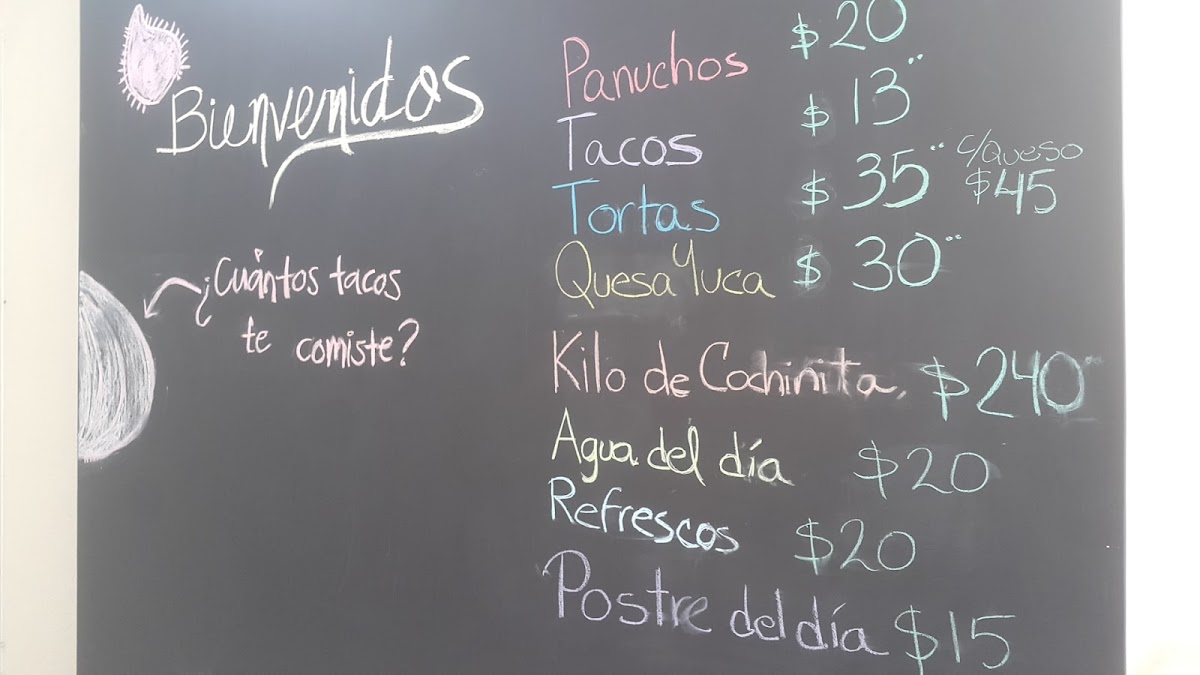 Bienvenidos
¿Cuántos tacos
te comiste?
Panuchos $20
Tacos $13
Tortas $35 c/Queso $45
QuesaYuca $30
Kilo de Cochinita. $240
Agua del día $20
Refrescos $20
Postre del día $15